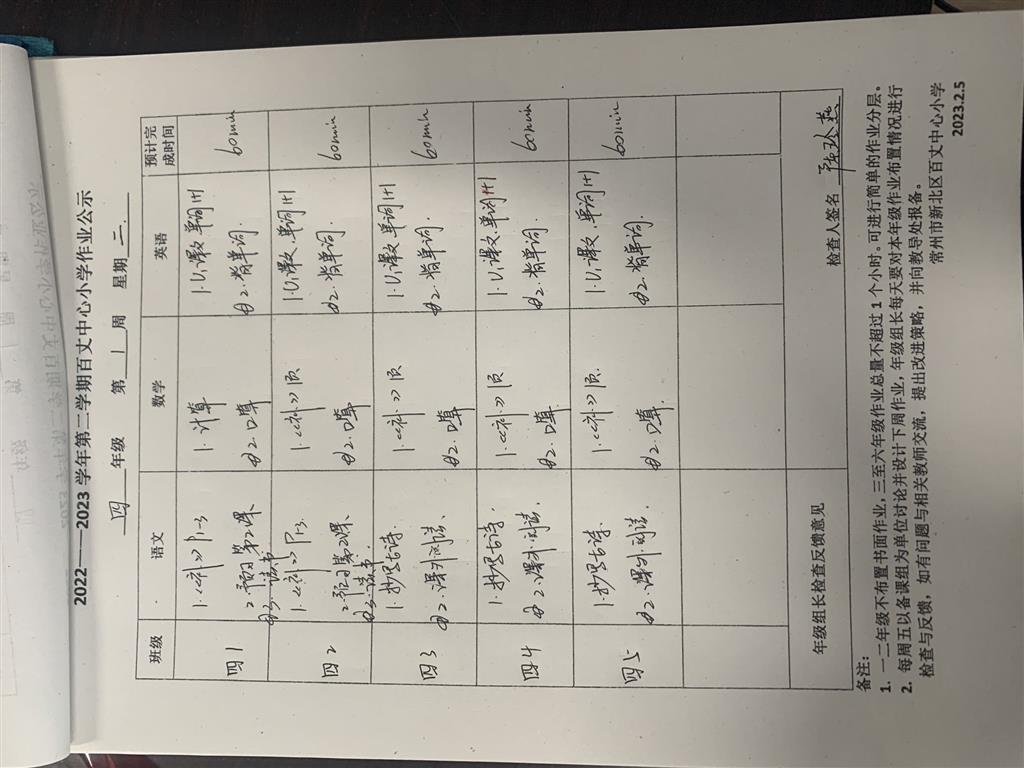 2022——2023 学年第二学期百丈中心小学作业公示
四 年级 第 1 周 星期 二
班级 语文 数学 英语 预计完成时间
四1
1.《补》P1-3
2.预习第2课
3.读书
1.计算
2.口算
1.U1课文.单词
2.背单词.
60min
四2
1.《补》P1-3.
2.预习第2课.
3.读书
1.《补》1页
2.口算.
1.U1课文.单词
2.背单词.
60min
四3
1.抄写古诗.
2.课外阅读.
1.《补》1页
2.口算.
1.U1课文.单词
2.背单词.
60min
四4
1.抄写古诗.
2.课外阅读.
1.《补》1页
2.口算.
1.U1课文.单词
2.背单词.
60min
四5
1.抄写古诗.
2.课外阅读.
1.《补》1页.
2.口算.
1.U1课文.单词
2.背单词.
60min
年级组长检查反馈意见 检查人签名
备注:
1. 一二年级不布置书面作业,三至六年级作业总量不超过 1 个小时。可进行简单的作业分层。
2. 每周五以备课组为单位讨论并设计下周作业,年级组长每天要对本年级作业布置情况进行
检查与反馈,如有问题与相关教师交流,提出改进策略,并向教导处报备。
常州市新北区百丈中心小学
2023.2.5